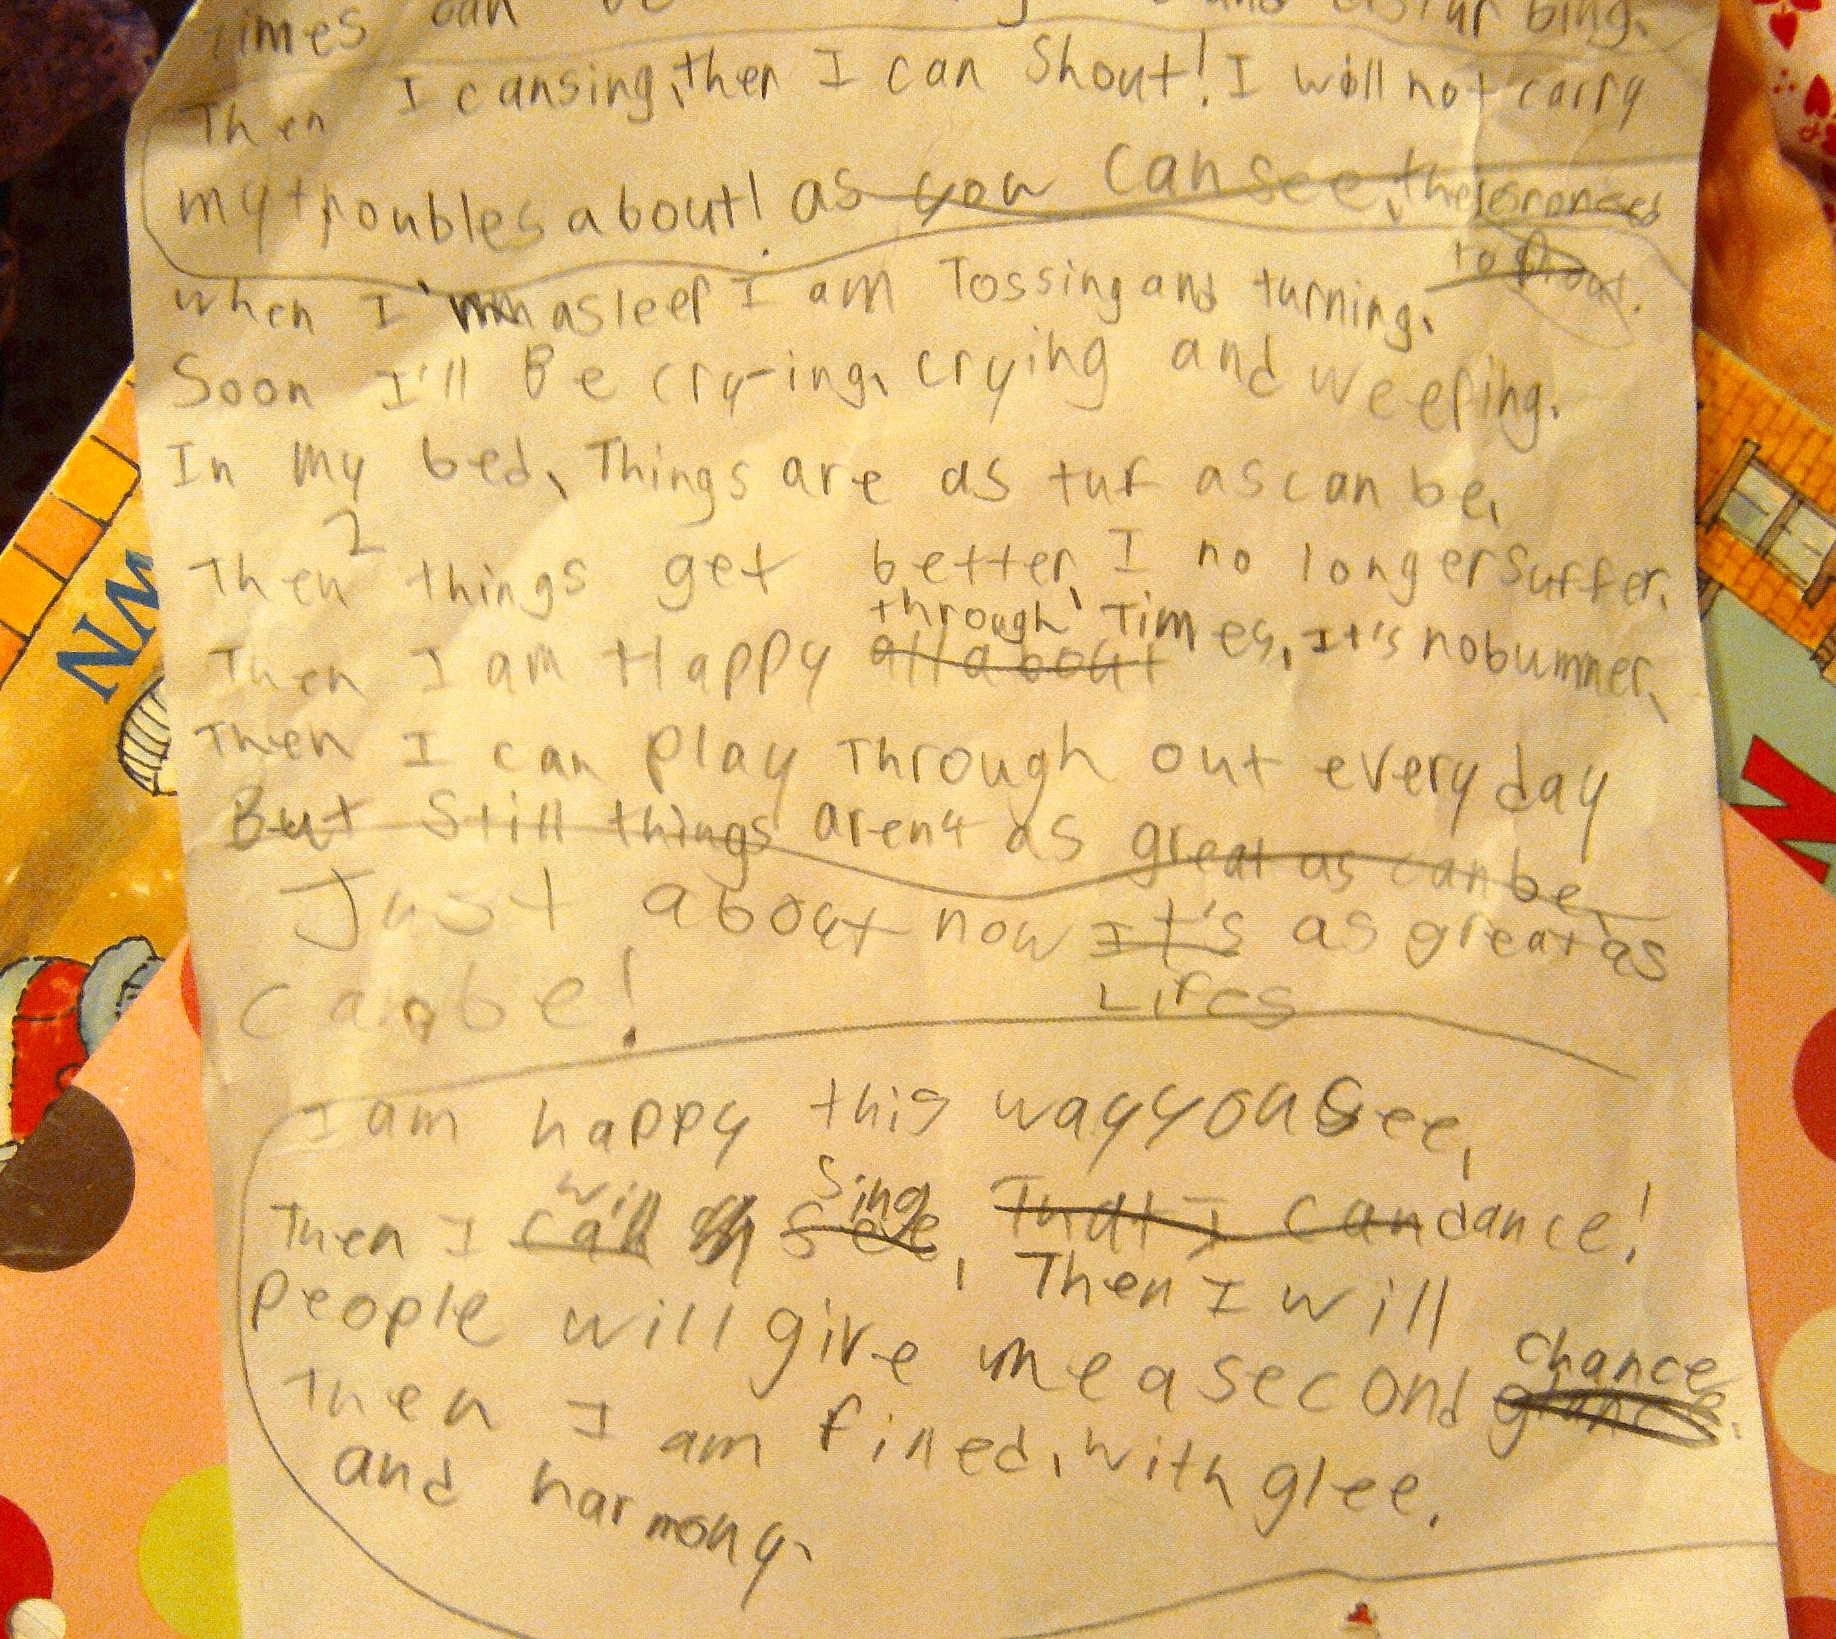 times can be and disturbing.
Then I can sing, then I can Shout! I will not carry
my troubles about! as you can see, theres
to
when I'm asleep I am Tossing and turning.
Soon I'll Be cry-ing, crying and weeping.
In my bed, Things are as tuf as can be,
2
Then things get better, I no longer suffer,
through
Then I am Happy all about Times, It's no bummer,
Then I can play Through out every day
But Still things aren4 as great as can be,
Just about now It's as great as
Lifes
can be!
I am happy this way you See,
will Sing
Then I call See, That I can dance!
Then I will
People will give me a second glance.
chance
Then I am filled, with glee.
and harmony.
NW